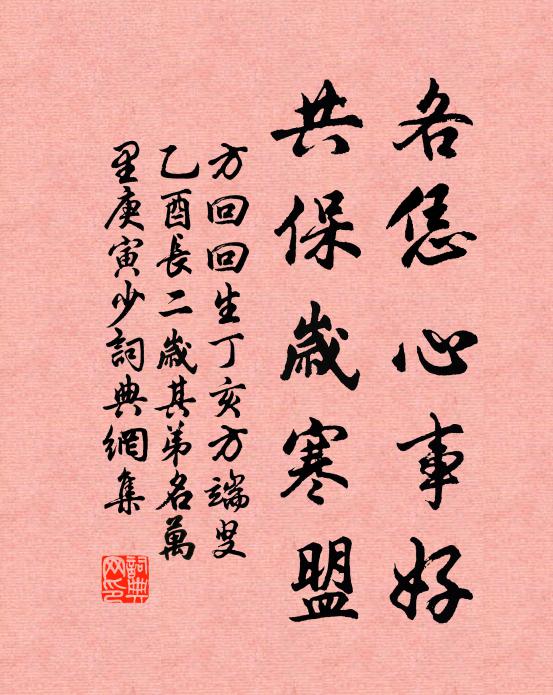 各恁心事好
共保歲寒盟
方回回生丁亥方端叟
乙酉長二歲其弟名萬
里庚寅少詞典網集
詞典
网印